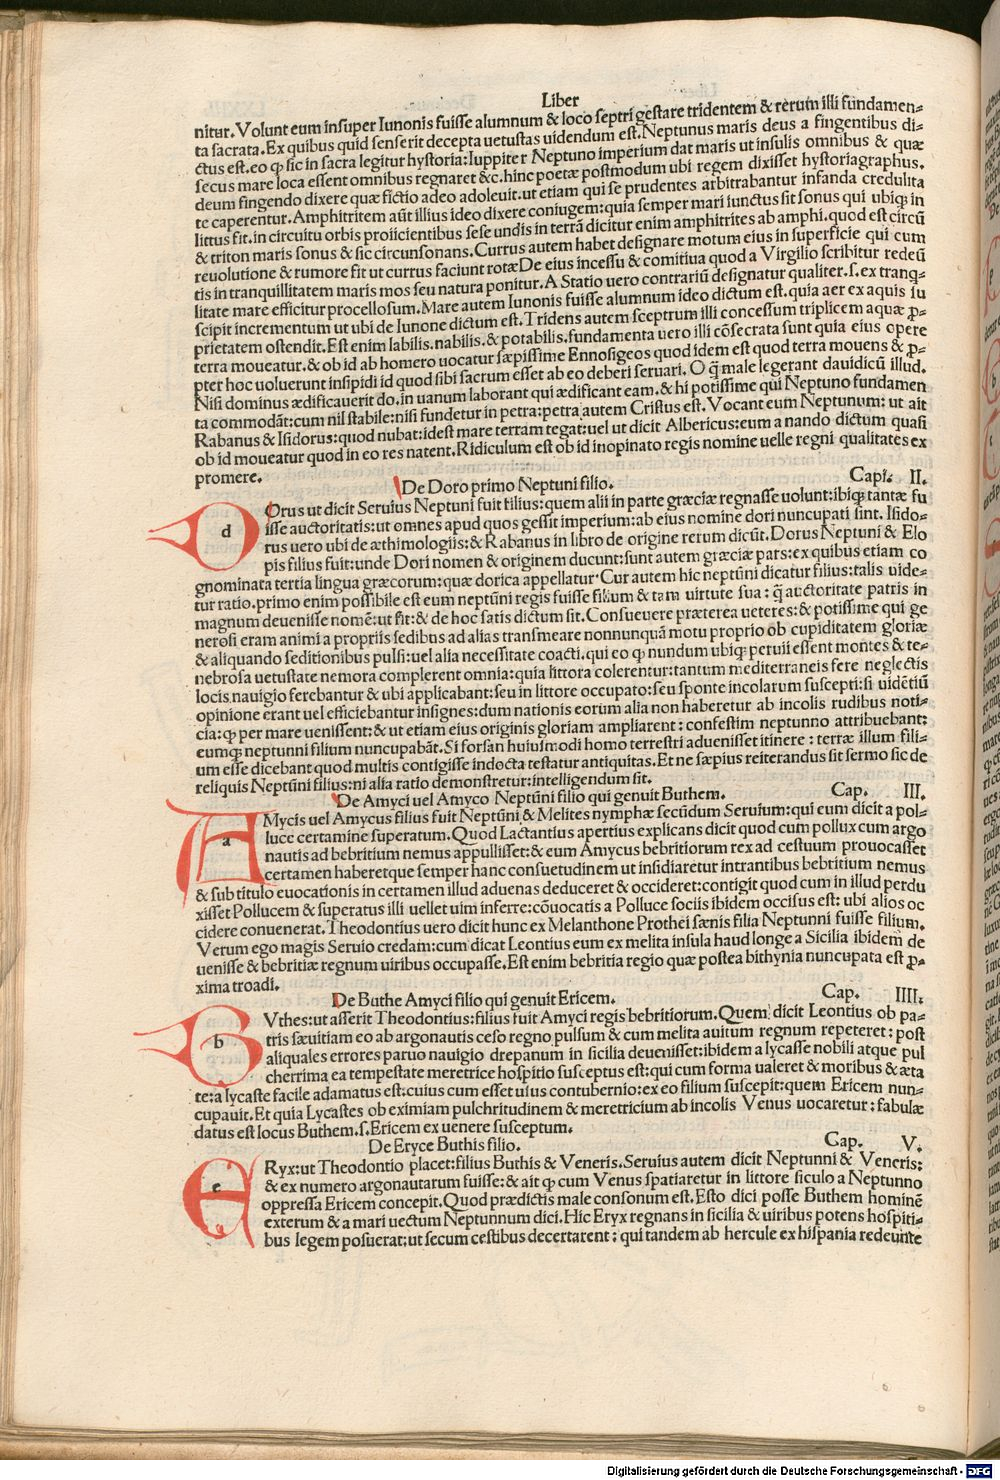 Liber
nitur. Volunt eum insuper Iunonis fuisse alumnum & loco septri gestare tridentem & rerum illi fundamen-
ta sacrata. Ex quibus quid senserit decepta uetustas uidendum est. Neptunus maris deus a fingentibus di-
ctus est. eo ꝙ sic in sacra legitur hystoria: Iuppiter Neptuno imperium dat maris ut insulis omnibus & quæ
secus mare loca essent omnibus regnaret &c. hinc poetæ postmodum ubi regem dixisset hystoriagraphus.
deum fingendo dixere quæ fictio adeo adoleuit. ut etiam qui se prudentes arbitrabantur infanda credulita
te caperentur. Amphitritem aūt illius ideo dixere coniugem: quia semper mari iunctus sit sonus qui ubiqꝫ in
littus fit. in circuitu orbis proiicientibus sese undis in terrā dicitur enim amphitrites ab amphi. quod est circū
& triton maris sonus & sic circunsonans. Currus autem habet designare motum eius in superficie qui cum
reuolutione & rumore fit ut currus faciunt rotæ De eius incessu & comitiua quod a Virgilio scribitur redeū
tis in tranquillitatem maris mos seu natura ponitur. A Statio uero contrariū designatur qualiter. s. ex tranq̄-
litate mare efficitur procellosum. Mare autem Iunonis fuisse alumnum ideo dictum est. quia aer ex aquis iu
scipit incrementum ut ubi de Iunone dictum est. Tridens autem sceptrum illi concessum triplicem aquæ ꝓ-
prietatem ostendit. Est enim labilis. nabilis. & potabilis. fundamenta uero illi cōsecrata sunt quia eius opere
terra moueatur. & ob id ab homero uocatur sæpissime Ennosigeos quod idem est quod terra mouens & ꝓ-
pter hoc uoluerunt insipidi id quod sibi sacrum esset ab eo deberi seruari. O q̄ male legerant dauidicū illud.
Nisi dominus ædificauerit do. in uanum laborant qui ædificant eam. & hi potissime qui Neptuno fundamen
ta commodāt: cum nil stabile: nisi fundetur in petra: petra autem Cristus est. Vocant eum Neptunum: ut ait
Rabanus & Isidorus: quod nubat: idest mare terram tegat: uel ut dicit Albericus: eum a nando dictum quasi
ob id moueatur quod in eo res natent. Ridiculum est ob id inopinato regis nomine uelle regni qualitates ex
promere.
De Doro primo Neptuni filio. Capi. II.
d Orus ut dicit Seruius Neptuni fuit filius: quem alii in parte græciæ regnasse uolunt: ibiqꝫ tantæ fu
isse auctoritatis: ut omnes apud quos gessit imperium: ab eius nomine dori nuncupati sint. Isido-
rus uero ubi de æthimologiis: & Rabanus in libro de origine rerum dicūt. Dorus Neptuni & Elo
pis filius fuit: unde Dori nomen & originem ducunt: sunt autem græciæ pars: ex quibus etiam co
gnominata tertia lingua græcorum: quæ dorica appellatur. Cur autem hic neptūni dicatur filius: talis uide-
tur ratio. primo enim possibile est eum neptūni regis fuisse filium & tam uirtute sua: q̄ auctoritate patris in
magnum deuenisse nomē: ut fit: & de hoc satis dictum sit. Consueuere præterea ueteres: & potissime qui ge
nerosi eram animi a propriis sedibus ad alias transmeare nonnunquā motu proprio ob cupiditatem gloriæ
& aliquando seditionibus pulsi: uel alia necessitate coacti. qui eo ꝙ nundum ubiqꝫ peruii essent montes & te-
nebrosa uetustate nemora complerent omnia: quia littora colerentur: tantum mediterraneis fere neglectis
locis nauigio ferebantur & ubi applicabant: seu in littore occupato: seu sponte incolarum suscepti: si uidētiū
opinione erant uel efficiebantur insignes: dum nationis eorum alia non haberetur ab incolis rudibus noti-
cia: ꝙ per mare uenissent: & ut etiam eius originis gloriam ampliarent: confestim neptunno attribuebant:
eumqꝫ neptunni filium nuncupabāt. Si forsan huiusmodi homo terrestri aduenisset itinere: terræ illum fili-
um esse dicebant quod multis contigisse indocta testatur antiquitas. Et ne sæpius reiterandus sit sermo sic de
reliquis Neptūni filius: ni alia ratio demonstretur: intelligendum sit.
De Amyci uel Amyco Neptūni filio qui genuit Buthem. Cap. III.
a Mycis uel Amycus filius fuit Neptūni & Melites nymphæ secūdum Seruium: qui eum dicit a pol-
luce certamine superatum. Quod Lactantius apertius explicans dicit quod cum pollux cum argo
nautis ad bebritium nemus appulisset: & eum Amycus bebritiorum rex ad cestuum prouocasset
certamen haberetque semper hanc consuetudinem ut insidiaretur intrantibus bebritium nemus
& sub titulo euocationis in certamen illud aduenas deduceret & occideret: contigit quod cum in illud perdu
xisset Pollucem & superatus illi uellet uim inferre: cōuocatis a Polluce sociis ibidem occisus est: ubi alios oc
cidere conuenerat. Theodontius uero dicit hunc ex Melanthone Prothei sænis filia Neptunni fuisse filium.
Verum ego magis Seruio credam: cum dicat Leontius eum ex melita insula haud longe a Sicilia ibidem de
uenisse & bebritiæ regnum uiribus occupasse. Est enim bebritia regio quæ postea bithynia nuncupata est ꝓ-
xima troadi.
De Buthe Amyci filio qui genuit Ericem. Cap. IIII.
b Vthes: ut asserit Theodontius: filius fuit Amyci regis bebritiorum. Quem dicit Leontius ob pa-
tris sæuitiam eo ab argonautis ceso regno pulsum & cum melita auitum regnum repeteret: post
aliquales errores paruo nauigio drepanum in sicilia deuenisset: ibidem a lycasse nobili atque pul
cherrima ea tempestate meretrice hospitio susceptus est: qui cum forma ualeret & moribus & æta
te: a lycaste facile adamatus est: cuius cum esset usus contubernio: ex eo filium suscepit: quem Ericem nun-
cupauit. Et quia Lycastes ob eximiam pulchritudinem & meretricium ab incolis Venus uocaretur: fabulæ
datus est locus Buthem. s. Ericem ex uenere susceptum.
De Eryce Buthis filio. Cap. V.
e RYx: ut Theodontio placet: filius Buthis & Veneris. Seruius autem dicit Neptunni & Veneris:
& ex numero argonautarum fuisse: & ait ꝙ cum Venus spatiaretur in littore siculo a Neptunno
oppressa Ericem concepit. Quod prædictis male consonum est. Esto dici posse Buthem hominē
exterum & a mari uectum Neptunnum dici. Hic Eryx regnans in sicilia & uiribus potens hospiti-
bus legem posuerat: ut secum cestibus decertarent: qui tandem ab hercule ex hispania redeunte
Digitalisierung gefördert durch die Deutsche Forschungsgemeinschaft - DFG